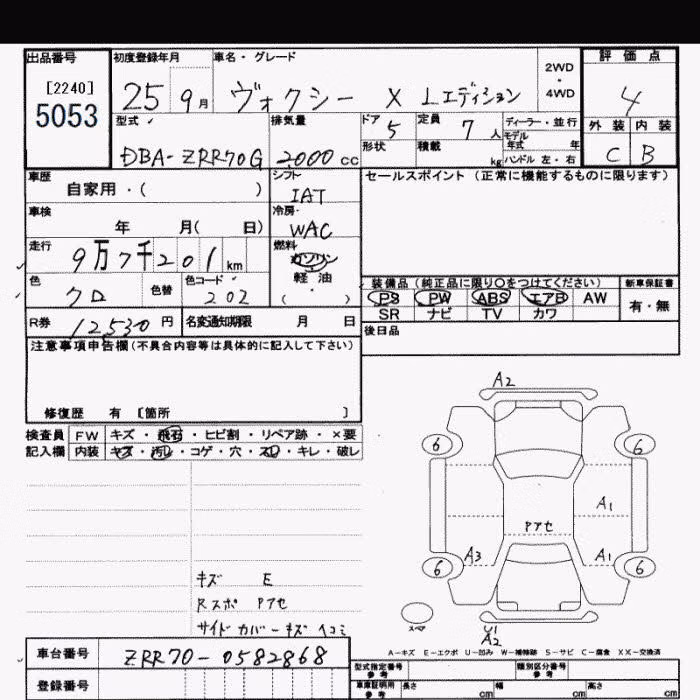 出品番号
[2240]
5053
初度登録年月
25 9月
車名・グレード
ヴォクシー X Lエディション
2WD
・
4WD
評価点
4
外装 内装
C B
型式
DBA-ZRR70G
排気量
2000 cc
ドア
5
形状
定員
7 人
積載
kg
ディーラー・並行
モデル
年式 年
ハンドル 左・右
車歴
自家用・( )
シフト
IAT
セールスポイント (正常に機能するものに限ります)
車検
年 月( 日)
冷房
WAC
走行
9万7千201km
燃料
ガソリン
軽油
( ・ )
色
クロ
色替
色コード
202
装備品 (純正品に限り○をつけてください)
PS PW ABS エアB AW
SR ナビ TV カワ
新車保証書
有・無
R券 12530円
名変通知期限 月 日
後日品
注意事項申告欄(不具合内容等は具体的に記入して下さい)
修復歴 有 [箇所 ]
検査員
記入欄
FW キズ・飛石・ヒビ割・リペア跡・×要
内装 キズ・汚れ・コゲ・穴・スレ・キレ・破レ
キズ E
Rスポ Pアセ
サイドカバーキズヘコミ
A2
6
6
A1
Pアセ
A3
A1
6
6
スペア
U1
A2
A-キズ E-エクボ U-凹み W-補修跡 S-サビ C-腐食 XX-交換済
車台番号
ZRR70-0582868
登録番号
型式指定番号
参考
類別区分番号
参考
車庫証明用
参考
長さ cm
幅 cm
高さ cm